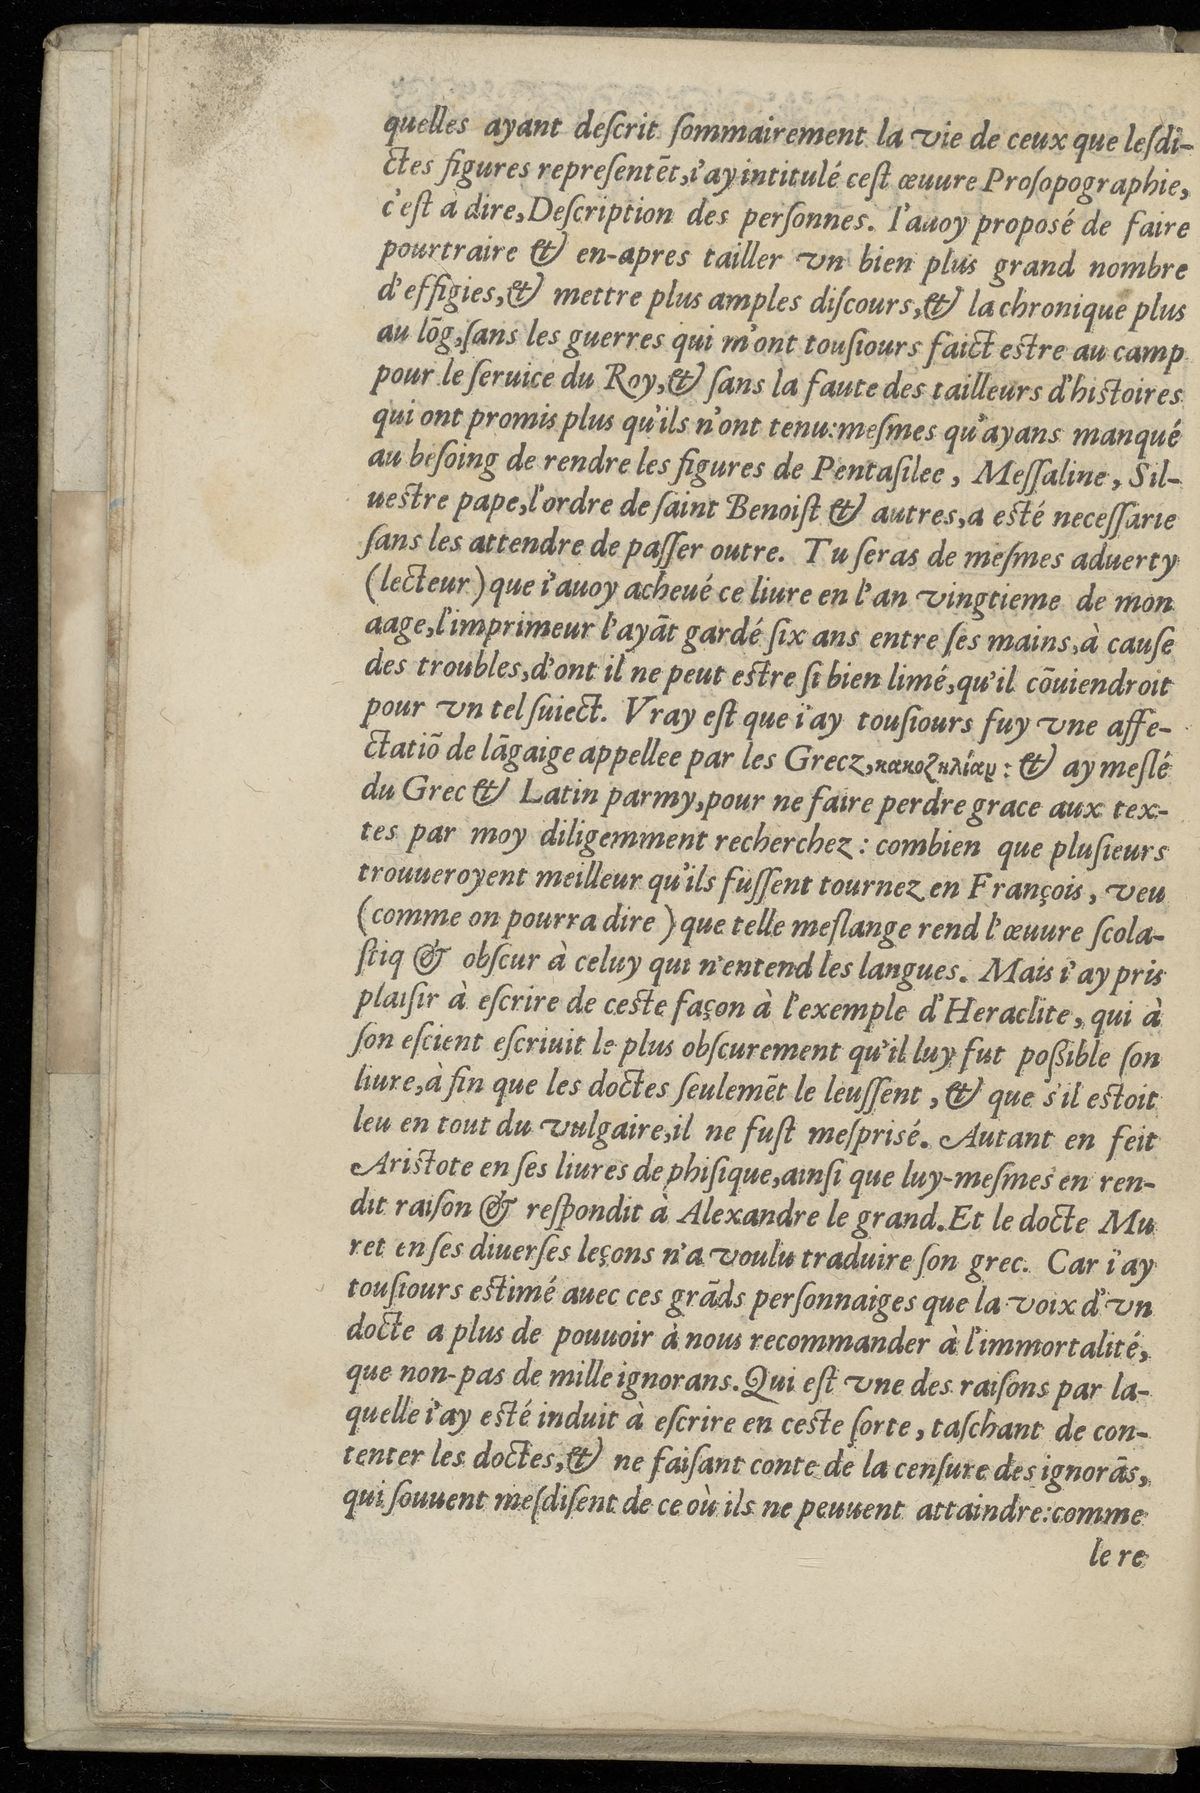 quelles ayant deſcrit ſommairement la vie de ceux que leſdi-
ctes figures repreſentẽt, i'ay intitulé ceſt œuure Proſopographie,
c'eſt a dire, Deſcription des perſonnes. I'auoy proposé de faire
pourtraire & en-apres tailler vn bien plus grand nombre
d'effigies, & mettre plus amples diſcours, & la chronique plus
au lõg, ſans les guerres qui m'ont touſiours faict eſtre au camp
pour le ſeruice du Roy, & ſans la faute des tailleurs d'hiſtoires
qui ont promis plus qu'ils n'ont tenu: meſmes qu'ayans manqué
au beſoing de rendre les figures de Pentaſilee, Meſſaline, Sil-
ueſtre pape, l'ordre de ſaint Benoiſt & autres, a eſté neceſſarie
ſans les attendre de paſſer outre. Tu ſeras de meſmes aduerty
(lecteur) que i'auoy acheué ce liure en l'an vingtieme de mon
aage, l'imprimeur l'ayãt gardé ſix ans entre ſes mains, à cauſe
des troubles, d'ont il ne peut eſtre ſi bien limé, qu'il cõuiendroit
pour vn tel ſuiect. Vray eſt que i'ay touſiours fuy vne affe-
ctatiõ de lãgaige appellee par les Grecz, κακοζηλίαν: & ay meſlé
du Grec & Latin parmy, pour ne faire perdre grace aux tex-
tes par moy diligemment recherchez: combien que pluſieurs
trouueroyent meilleur qu'ils fuſſent tournez en François, veu
(comme on pourra dire) que telle meſlange rend l'œuure ſcola-
ſtiq & obſcur à celuy qui n'entend les langues. Mais i'ay pris
plaiſir à eſcrire de ceſte façon à l'exemple d'Heraclite, qui à
ſon eſcient eſcriuit le plus obſcurement qu'il luy fut poßible ſon
liure, à fin que les doctes ſeulemẽt le leuſſent, & que s'il eſtoit
leu en tout du vulgaire, il ne fuſt meſprisé. Autant en feit
Ariſtote en ſes liures de phiſique, ainſi que luy-meſmes en ren-
dit raiſon & reſpondit à Alexandre le grand. Et le docte Mu
ret en ſes diuerſes leçons n'a voulu traduire ſon grec. Car i'ay
touſiours eſtimé auec ces grãds perſonnaiges que la voix d'vn
docte a plus de pouuoir à nous recommander à l'immortalité,
que non-pas de mille ignorans. Qui eſt vne des raiſons par la-
quelle i'ay eſté induit à eſcrire en ceſte ſorte, taſchant de con-
tenter les doctes, & ne faiſant conte de la cenſure des ignorãs,
qui ſouuent meſdiſent de ce où ils ne peuuent attaindre: comme
le re